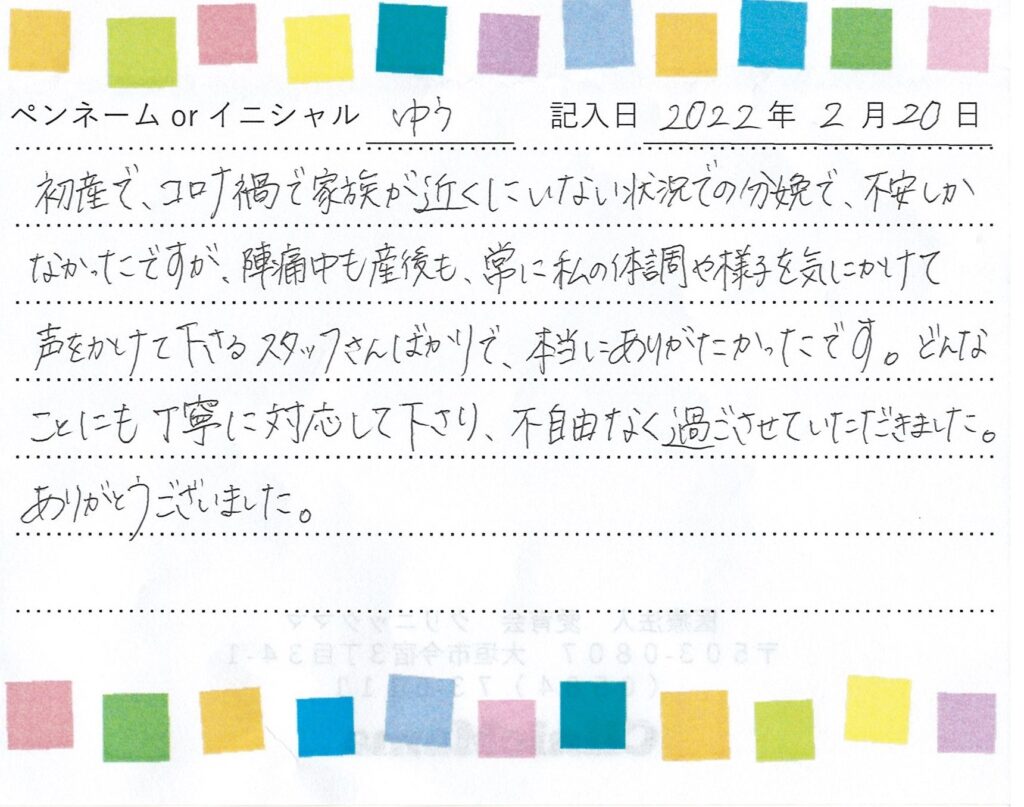 ペンネーム or イニシャル ゆう 記入日 2022年 2月20日
初産で、コロナ禍で家族が近くにいない状況での分娩で、不安しか
なかったですが、陣痛中も産後も、常に私の体調や様子を気にかけて
声をかけて下さるスタッフさんばかりで、本当にありがたかったです。どんな
ことにも丁寧に対応して下さり、不自由なく過ごさせていただきました。
ありがとうございました。
医療法人 愛育会 クリニックママ
〒503-0807 大垣市今宿3丁目34-1